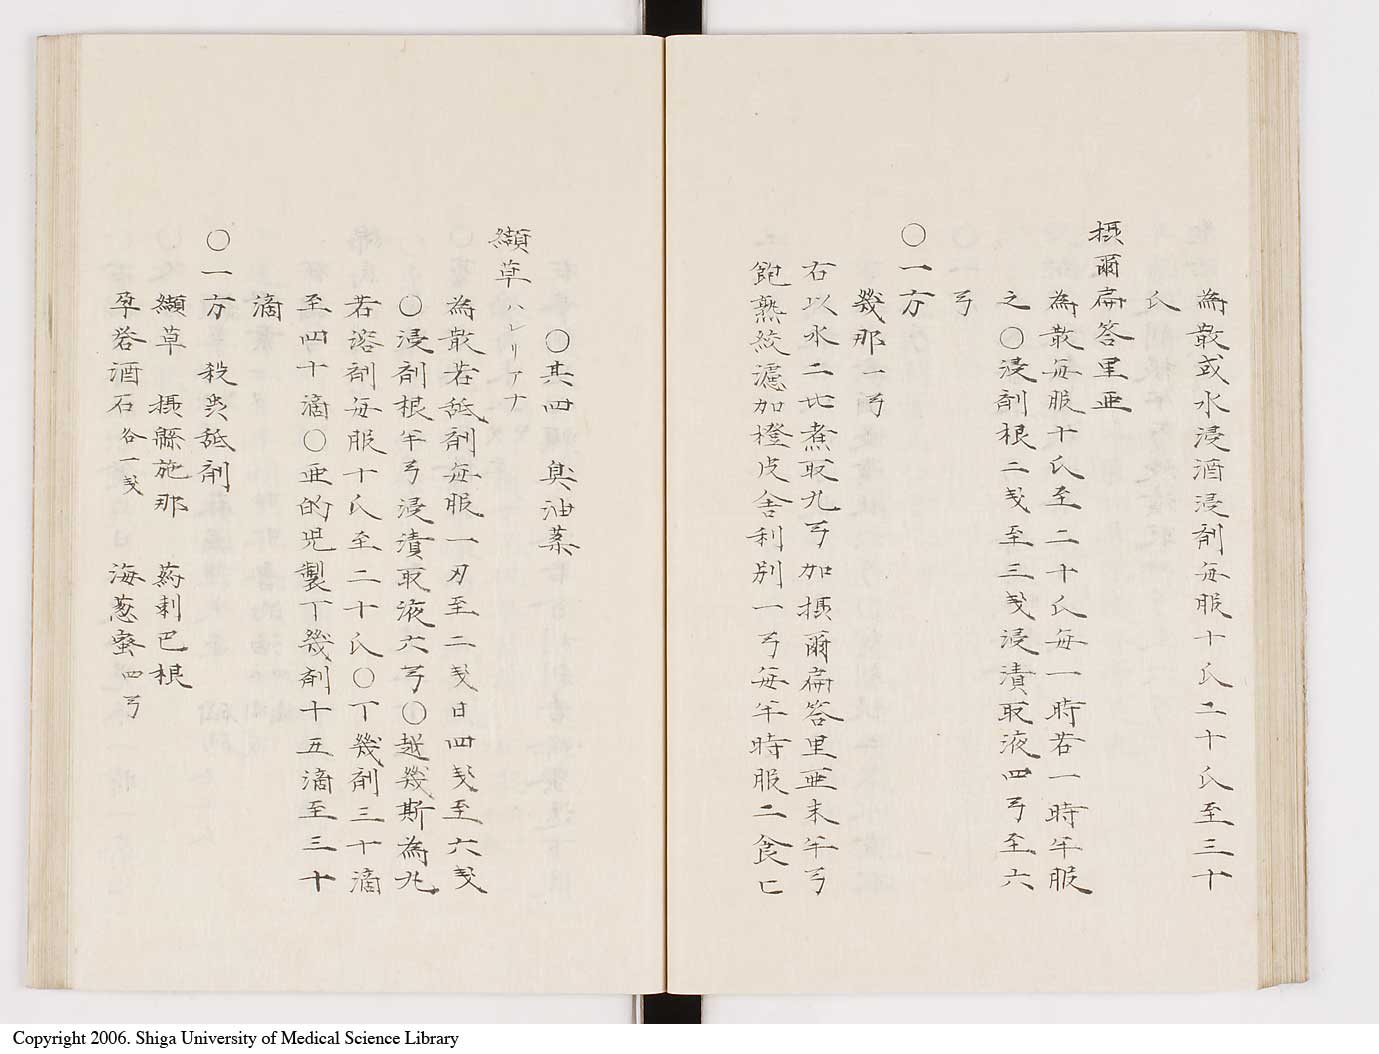 為散或水浸酒浸剤毎服十氏二十氏至三十
氏
摂爾扁答里亜
為散毎服十氏至二十氏毎一時若一時半服
之〇浸剤根二戔至三戔浸漬取液四弓至六
弓
〇一方
幾那一弓
右以水二比煮取九弓加摂爾扁答里亜末半弓
飽熟絞濾加橙皮舎利別一弓毎半時服二食匕
〇其四 臭油薬
纈草ハレリアナ
為散若舐剤毎服一刃至二戔日四戔至六戔
〇浸剤根半弓浸漬取液六弓〇越幾斯為丸
若溶剤毎服十氏至二十氏〇丁幾剤三十滴
至四十滴〇亜的児製丁幾剤十五滴至三十
滴
〇一方 殺虫舐剤
纈草 摂緜施那 葯剌巴根
孕礬酒石各一戔 海葱蜜四弓
Copyright 2006. Shiga University of Medical Science Library